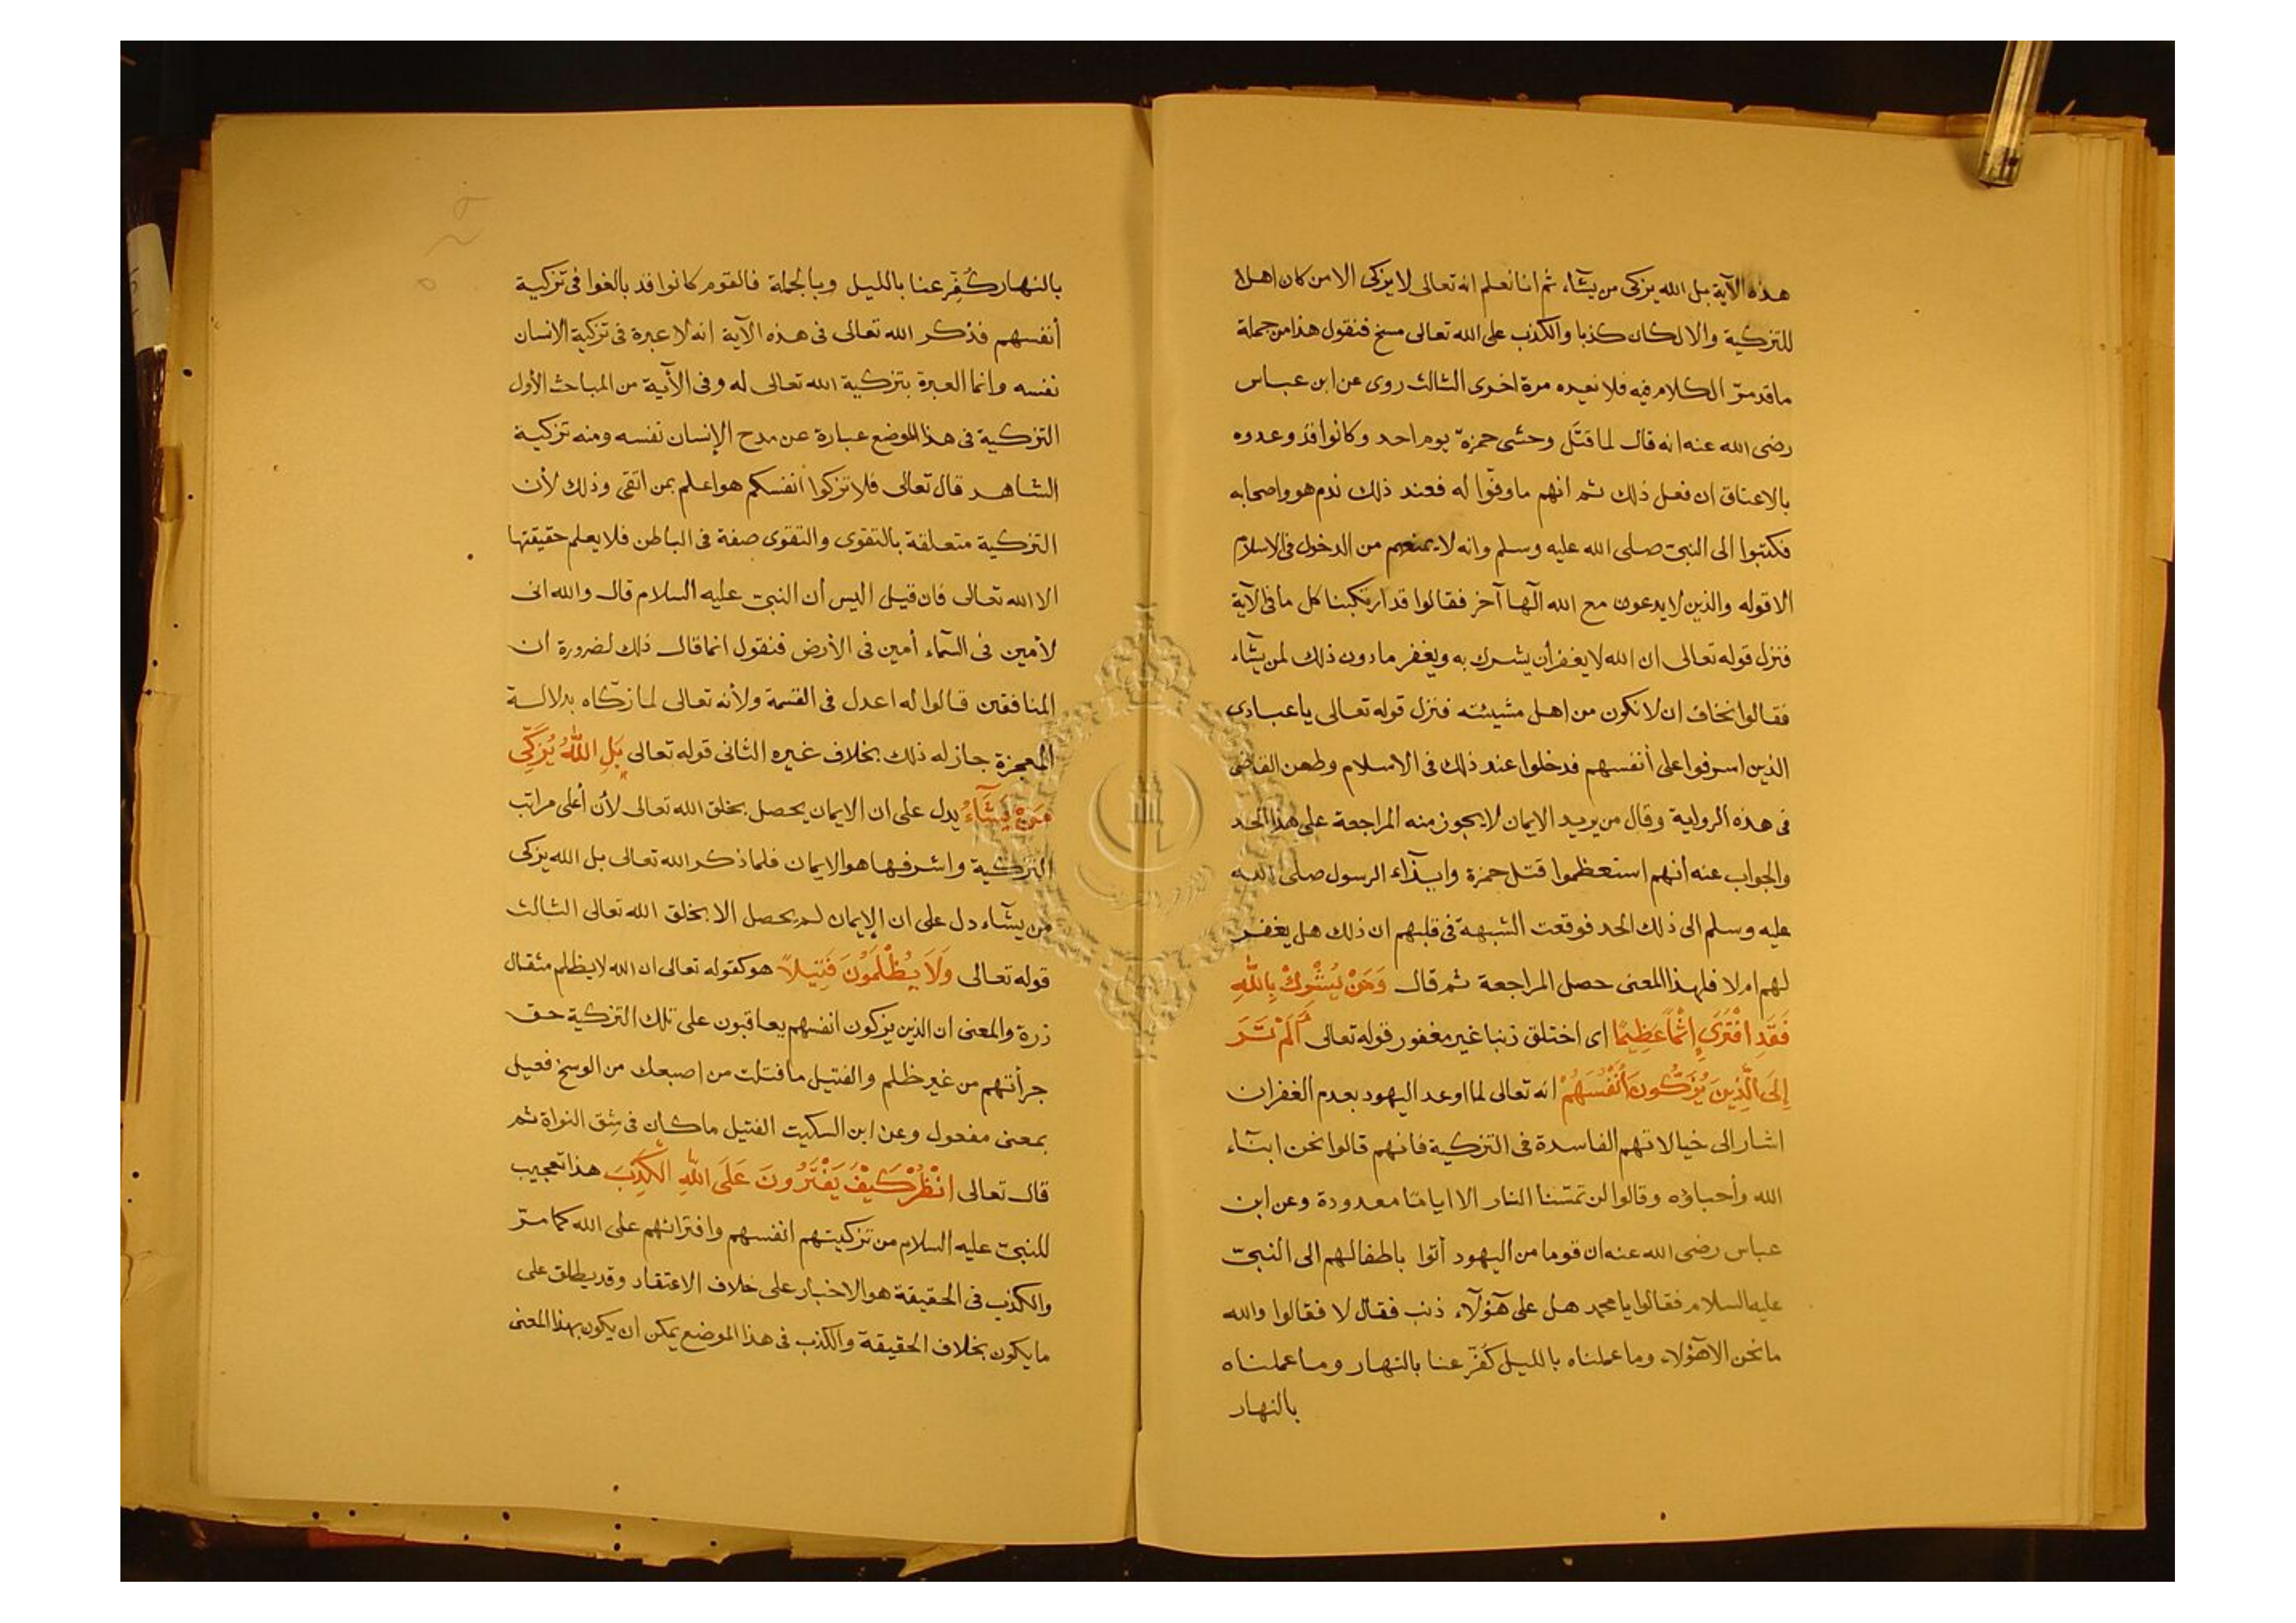 هذه الآية بل الله يزكى من يشآء ثم انا نعلم انه تعالى لا يزكى الا من كان اهلا
للتزكية والا لكان كذبا والكذب على الله تعالى مسخ فنقول هذا من جملة
ما قد مرّ الكلام فيه فلا نعيده مرة اخرى الثالث روى عن ابن عباس
رضى الله عنه انه قال لما قتل وحشى حمزة يوم احد وكانوا قد وعدوه
بالاعتاق ان فعل ذلك ثم انهم ما وفّوا له فعند ذلك ندم هو واصحابه
فكتبوا الى النبىّ صلى الله عليه وسلم وانه لا يمنعهم من الدخول فى الاسلام
الا قوله والذين لا يدعون مع الله الٓها آخر فقالوا قد ارتكبنا كل ما فى الآية
فنزل قوله تعالى ان الله لا يغفر أن يشرك به ويغفر ما دون ذلك لمن يشآء
فقالوا نخاف ان لا نكون من اهل مشيئته فنزل قوله تعالى يا عبادى
الذين اسرفوا على أنفسهم فدخلوا عند ذلك فى الاسلام وطعن القاضى
فى هذه الرواية وقال من يريد الايمان لا يجوز منه المراجعة على هذا الحد
والجواب عنه أنهم استعظموا قتل حمزة وايذآء الرسول صلى الله
عليه وسلم الى ذلك الحد فوقعت الشبهة فى قلبهم ان ذلك هل يغفر
لهم ام لا فلهذا المعنى حصل المراجعة ثم قال وَمَنْ يُشْرِكْ بِاللهِ
فَقَدِ افْتَرَىٰٓ إِثْمًا عَظِيمًا اى اختلق ذنبا غير مغفور قوله تعالى أَلَمْ تَرَ
إِلَى الَّذِينَ يُزَكُّونَ أَنْفُسَهُمْ انه تعالى لما اوعد اليهود بعدم الغفران
اشار الى خيالاتهم الفاسدة فى التزكية فانهم قالوا نحن ابنآء
الله وأحباؤه وقالوا لن تمسّنا النار الا اياما معدودة وعن ابن
عباس رضى الله عنه ان قوما من اليهود أتوا باطفالهم الى النبىّ
عليه السلام فقالوا يا محمد هل على هٓؤلآء ذنب فقال لا فقالوا والله
ما نحن الا هٓؤلاء وما عملناه بالليل كُفّر عنا بالنهار وما عملناه
بالنهار
بالنهار كُفِّر عنا بالليل وبالجملة فالقوم كانوا قد بالغوا فى تزكية
أنفسهم فذكر الله تعالى فى هذه الآية انه لا عبرة فى تزكية الانسان
نفسه وانما العبرة بتزكية الله تعالى له وفى الآية من المباحث الأول
التزكية فى هذا الموضع عبارة عن مدح الإنسان نفسه ومنه تزكية
الشاهد قال تعالى فلا تزكوا أنفسكم هو اعلم بمن اتقى وذلك لأن
التزكية متعلقة بالتقوى والتقوى صفة فى الباطن فلا يعلم حقيقتها
الا الله تعالى فان قيل اليس أن النبىّ عليه السلام قال والله انى
لأمين فى السمآء أمين فى الأرض فنقول انما قال ذلك لضرورة ان
المنافقين قالوا له اعدل فى القسمة ولأنه تعالى لما زكّاه بدلالة
المعجزة جاز له ذلك بخلاف غيره الثانى قوله تعالى بَلِ اللهُ يُزَكِّى
مَنْ يَشَآءُ يدل على ان الايمان يحصل بخلق الله تعالى لأن أعلى مراتب
التزكية واشرفها هو الايمان فلما ذكر الله تعالى بل الله يزكى
من يشآء دل على ان الإيمان لم يحصل الا بخلق الله تعالى الثالث
قوله تعالى وَلَا يُظْلَمُونَ فَتِيلاً هو كقوله تعالى ان الله لا يظلم مثقال
ذرة والمعنى ان الذين يزكون انفسهم يعاقبون على تلك التزكية حق
جرأتهم من غير ظلم والفتيل ما فتلت من اصبعك من الوسخ فعيل
بمعنى مفعول وعن ابن السكيت الفتيل ما كان فى شِق النواة ثم
قال تعالى انْظُرْ كَيْفَ يَفْتَرُونَ عَلَى اللهِ الْكَذِبَ هذا تعجيب
للنبىّ عليه السلام من تزكيتهم انفسهم وافترائهم على الله كما مرّ
والكذب فى الحقيقة هو الاخبار على خلاف الاعتقاد وقد يطلق على
ما يكون بخلاف الحقيقة والكذب فى هذا الموضع يمكن ان يكون بهذا المعنى